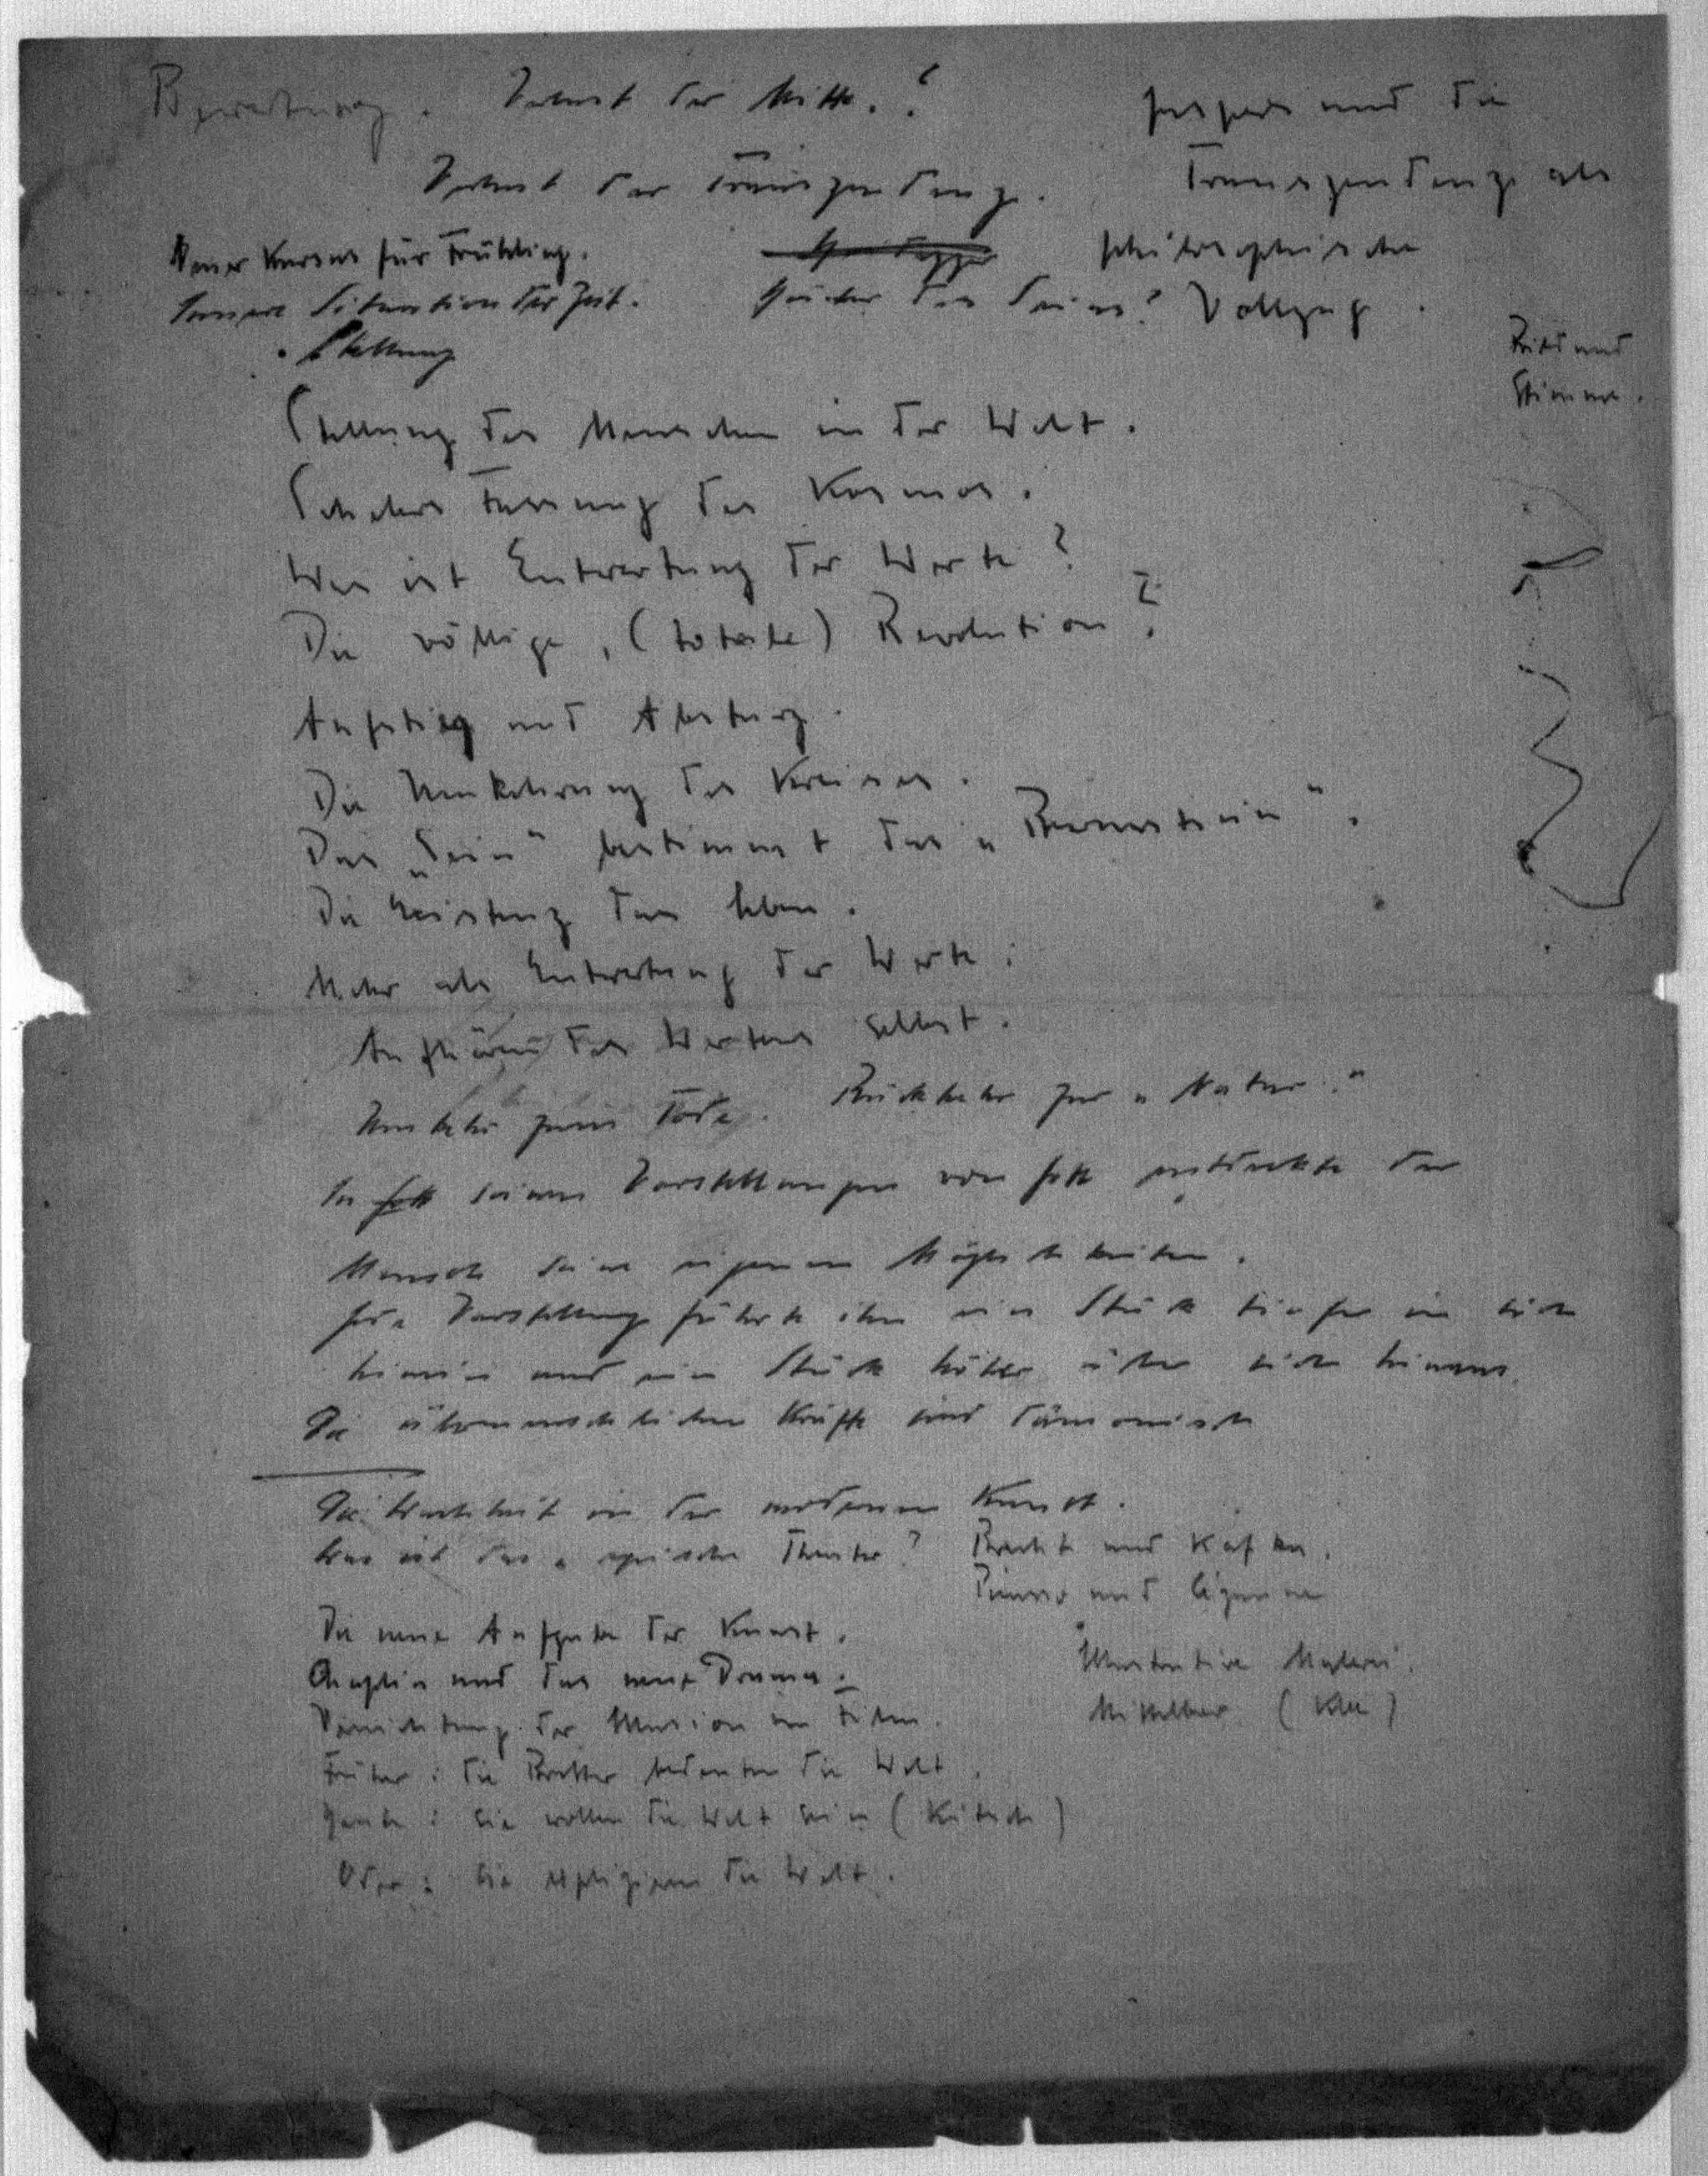 Bewertung. Verlust der Mitte.?
Verlust der Transzendenz.
Jaspers und die
Transzendenz als
philosophischer
Vollzug.
Neuer Kursus für Frühling.
Innere Situation der Zeit.
Heidegger
Hüter des Seins?
Stellung
Bild und
Stimme.
Stellung des Menschen in der Welt.
Schelers Fassung des Kosmos.
Was ist Entwertung der Werte?
Die völlige, (totale) Revolution?
Aufstieg und Absturz.
Die Umkehrung des Kreises.
Das „Sein“ bestimmt das „Bewusstsein“.
Die Existenz das Leben.
Mehr als Entwertung der Werte:
Aufhören des Wertens selbst.
Umkehr zum Tode. Rückkehr zur „Natur.“
In Gott seinen Vorstellungen von Gott entdeckte der
Mensch seine eigenen Möglichkeiten.
Jede Vorstellung führte ihn ein Stück tiefer in sich
hinein und ein Stück höher über sich hinaus.
Die übermenschlichen Kräfte sind dämonisch
Die Wahrheit in der modernen Kunst.
Was ist das „epische Theater? Brecht und Kafka.
Picasso und
Die neue Aufgabe der Kunst.
Chaplin und das neue Drama.
Illustrative Malerei.
Vernichtung der Illusion im Film.
Mittelbar (Klee)
Früher: die Bretter bedeuten die Welt.
Heute: sie wollen die Welt sein (Kitsch)
Oder: sie explizieren die Welt.